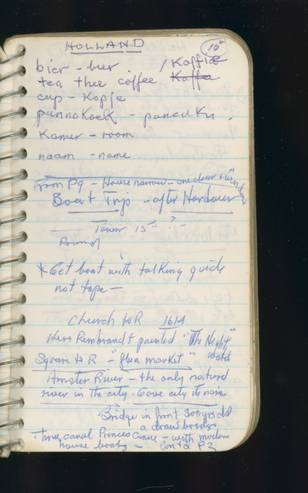 HOLLAND
10
bier - beer / Koffie
tea thee coffee Koffie
cup - Kopje
pannakoek - pancake,
Kamer - room
naam - name
from P9 - House narrow - one door +
Boat Trip - after Harbour
Tower 15th ?
Round
* Get boat with talking guide
not tape -
Church to R 1614
Here Rembrandt painted "The Night
Square to R - "flea market"
Amster River - the only natural
river in the city. Gave city its name
Bridge in front 300 yrs old
a draw bridge
canal Princes Canal - with modern
house boats - Contd P2